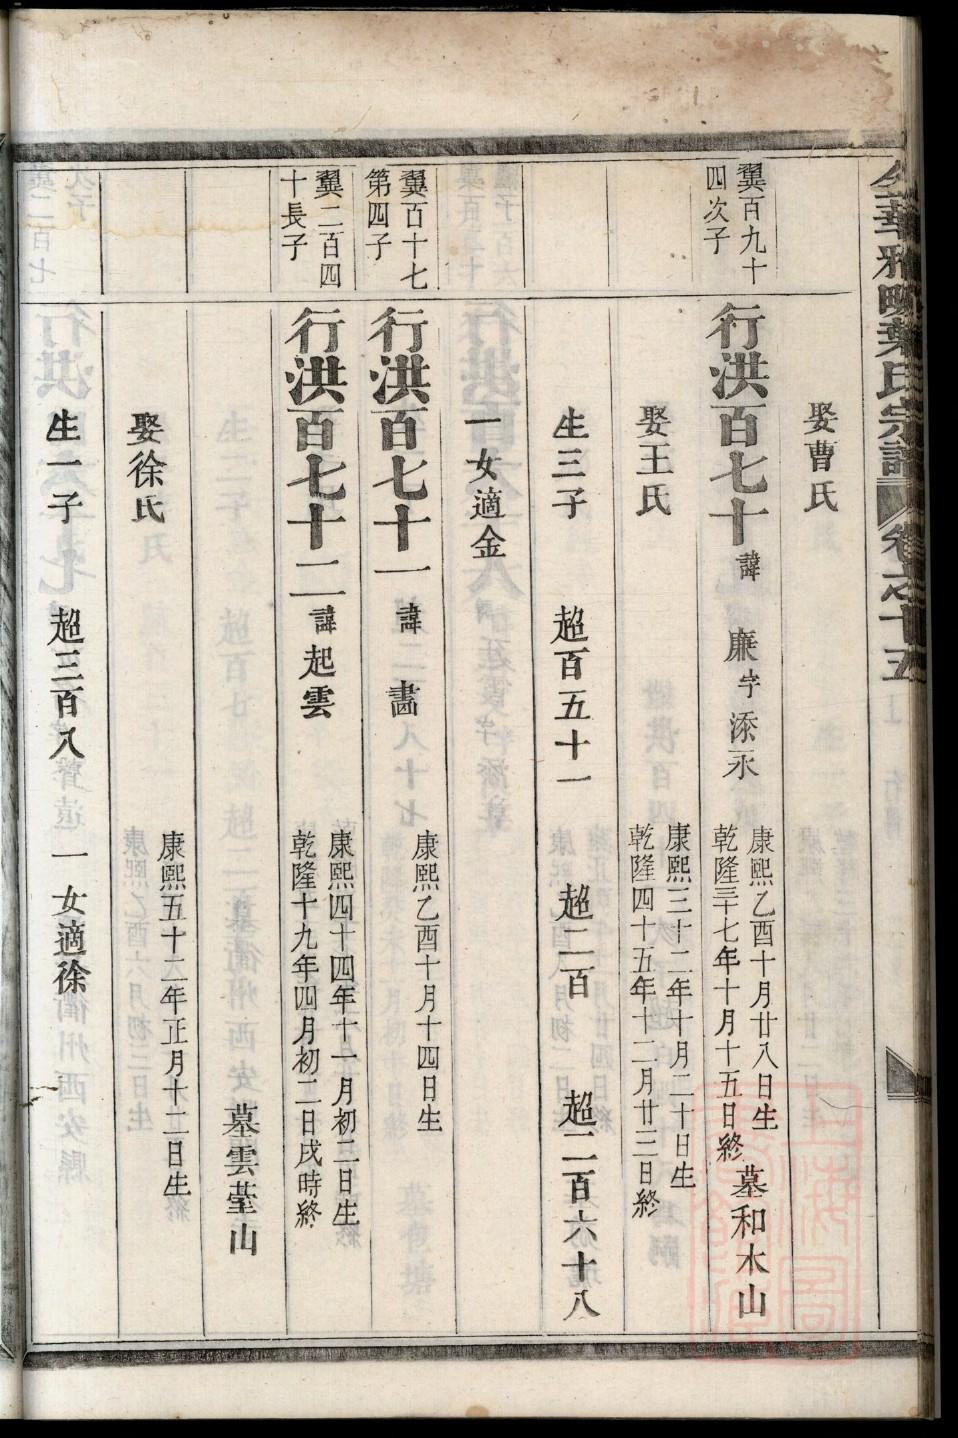 金華雅畈葉氏宗譜 卷之十五
娶曹氏
翼百九十
四次子
行洪百七十 諱 廉 字 添永
康熙乙酉十月廿八日生
乾隆三十七年十月十五日終
墓和木山
娶王氏
康熙三十二年十月二十日生
乾隆四十五年十二月廿三日終
生三子 超百五十一 超二百 超二百六十八
一女適金
翼百十七
第四子
行洪百七十一 諱 畵
康熙乙酉十月十四日生
翼二百四
十長子
行洪百七十二 諱 起雲
康熙四十四年十一月初二日生
乾隆十九年四月初二日戌時終
墓雲薹山
娶徐氏
康熙五十二年正月十二日生
生一子 超三百八 一女適徐